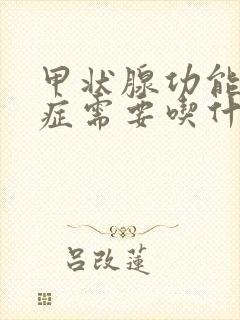 甲状腺功能
症需要喫什
吕改莲